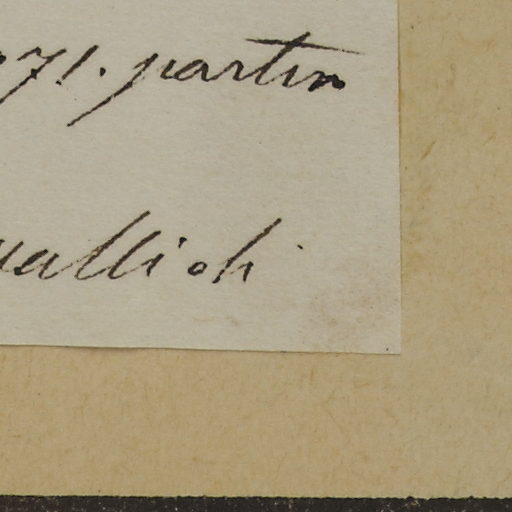 71. partim
Wallich